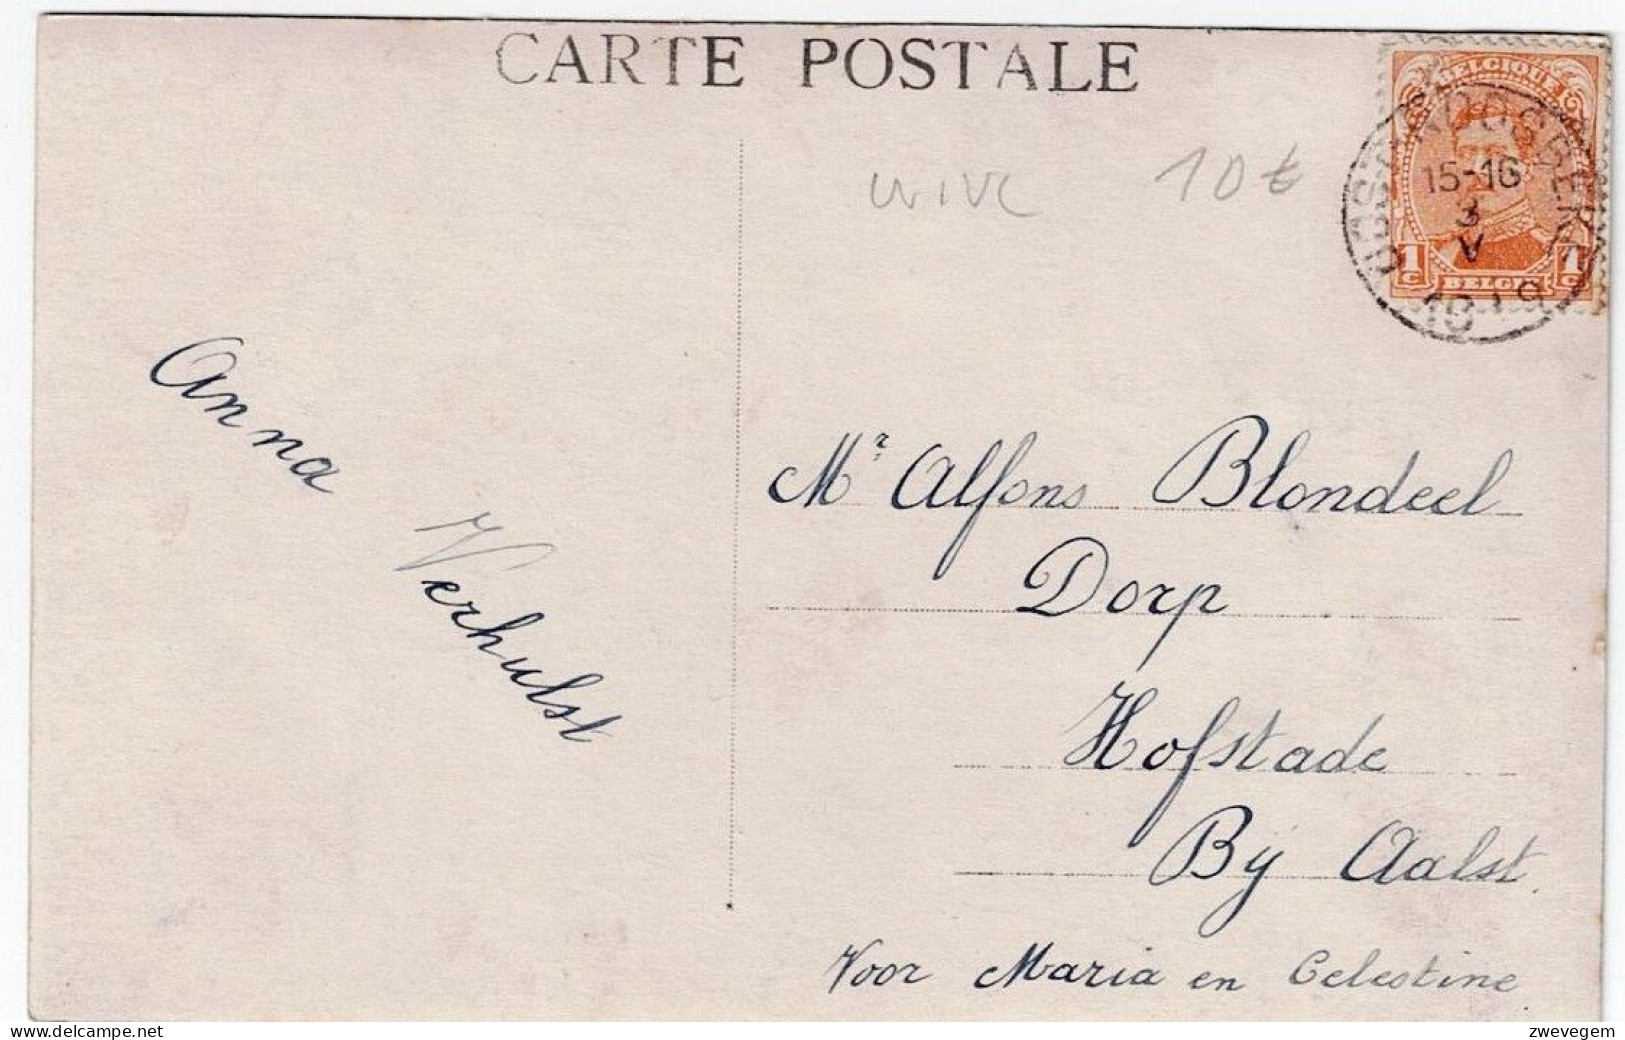 CARTE POSTALE
10 €
BELGIQUE
15-16
3
V
1919
1c 1c
BELGIË
Anna
Verhulst
Mr Alfons Blondeel
Dorp
Hofstade
Bij Aalst.
Voor Maria en Celestine
delcampe.net
zwevegem